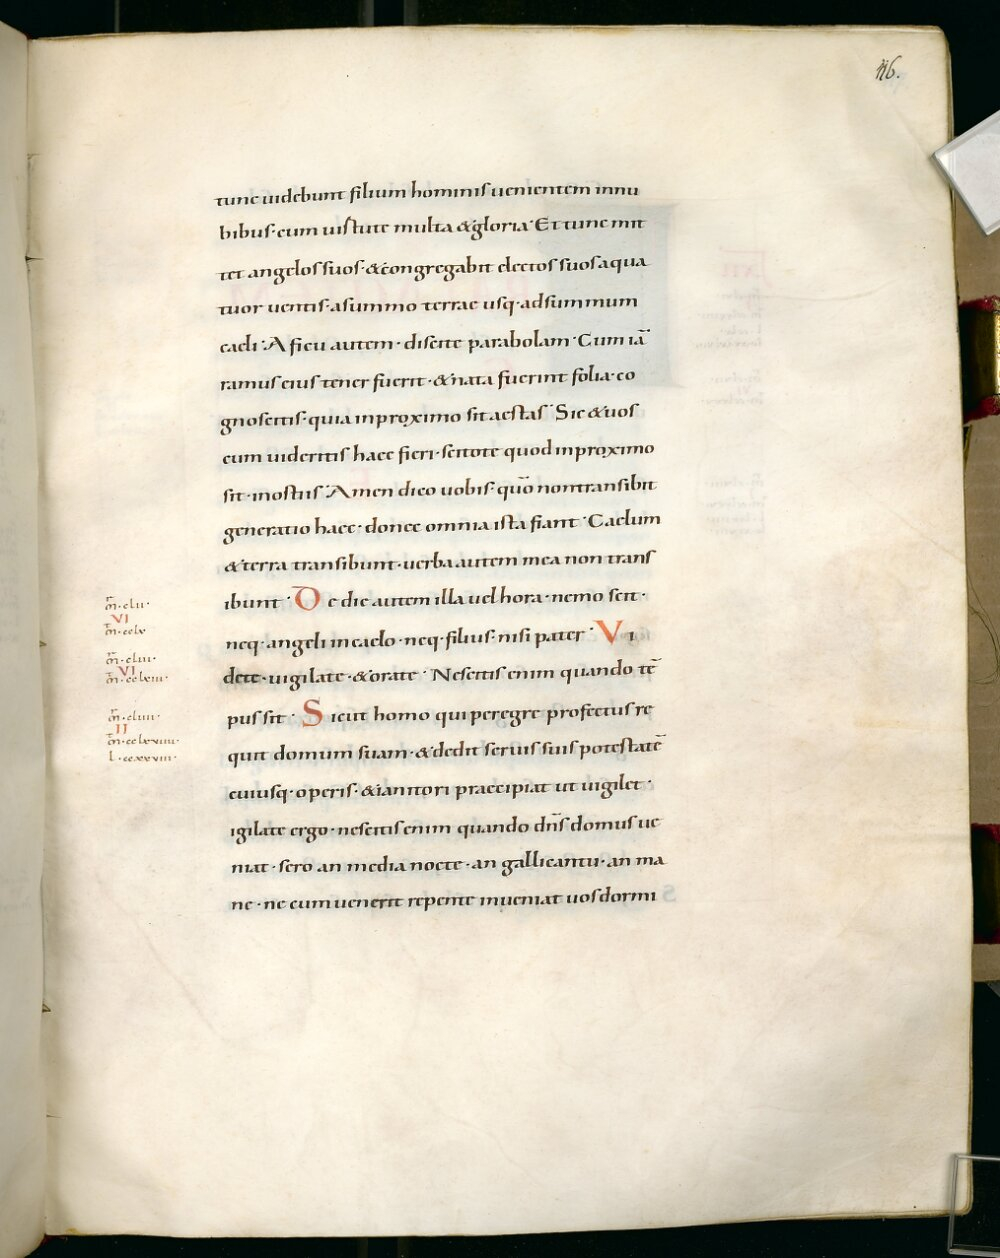 116.
tunc uidebunt filium hominis uenientem innu
bibus· cum uirtute multa & gloria· Et tunc mit
tet angelos suos· & congregabit electos suos aqua
tuor uentis· asummo terrae usq· adsummum
caeli· A ficu autem· discite parabolam· Cum iā
ramus eius tener fuerit· & nata fuerint folia· co
gnoscitis· quia inproximo sit aestas· Sic & uos
cum uideritis haec fieri· scitote quod inproximo
sit· inostiis· Amen dico uobis· quō nontransibit
generatio haec· donec omnia ista fiant· Caelum
& terra transibunt· uerba autem mea non trans
ibunt· De die autem illa uel hora· nemo scit·
neq· angeli incaelo· neq· filius· nisi pater· Vi
dete· uigilate· & orate· Nescitis enim quando tē
pus sit· Sicut homo qui peregre profectus re
quit domum suam· & dedit seruis suis potestatē
cuiusq· operis· & ianitori praecipiat ut uigilet·
igilate ergo· nescitis enim quando dn̄s domus ue
niat· sero an media nocte· an gallicantu· an ma
ne· ne cum uenerit repente inueniat uos dormi
m̄r·clii·
VI
m̄t·cclx
m̄r·cliii·
VI
m̄t·cclxiii·
m̄r·cliiii·
II
m̄t·cclxviiii·
l·ccxxviii·